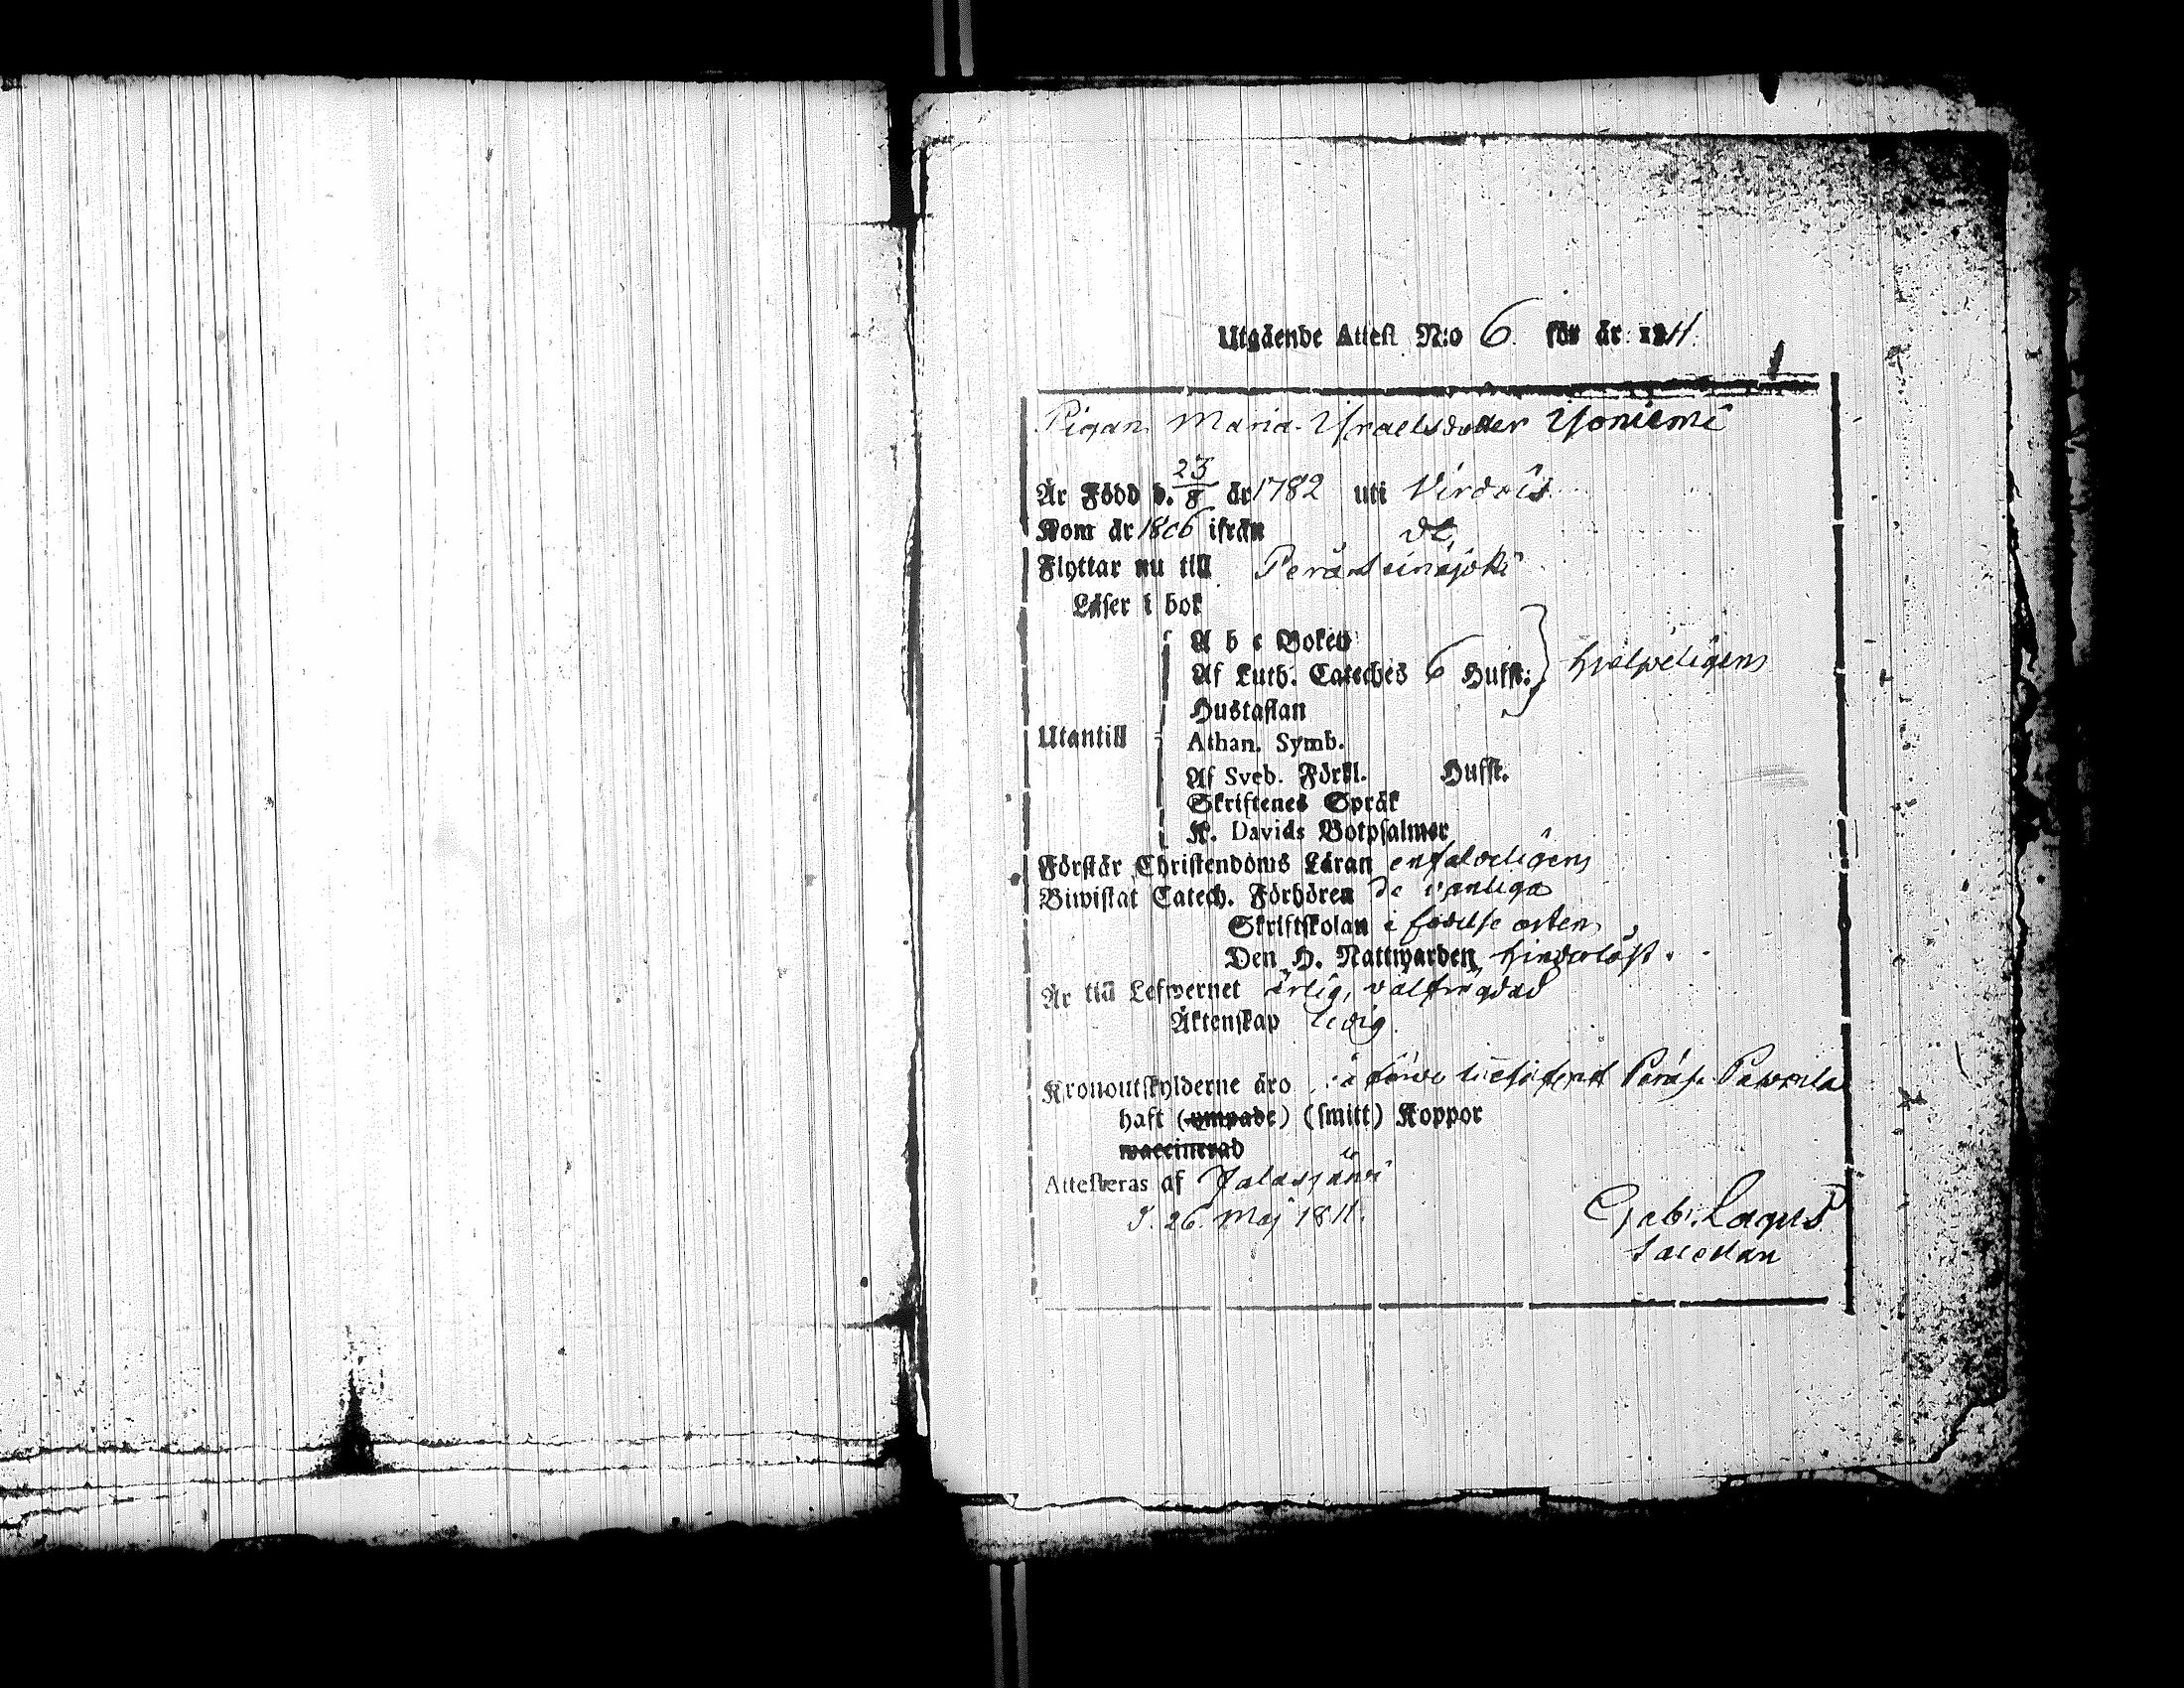 Utgående Attest N:o 6. för år 1811.
Pigan Maria Israelsdotter Isoniemi
Är Född d. 23/8 år 1782 uti Virdois
Kom år 1806 ifrån do
Flyttar nu till Peräseinäjoki
Läser i bok
A b c Boken
Af Luth. Cateches 6 Hufst: hjelpeligen
Hustaflan
Utantill
Athan. Symb.
Af Sveb. Förkl. Hufst.
Skriftenes Språk
K. Davids Botpsalmer
Förstår Christendoms Läran enfaldeligen
Biwistat Catech. Förhören de vanliga
Skriftskolan i födelse orten
Den H. Nattwarden hinderlöst.
Är till Lefwernet ärlig, välfrägdad
Äktenskap ledig
Kronoutskylderne äro
haft (ympade) (smitt) Koppor
waccinerad
Attesteras af Jalasjärvi
d. 26 Maj 1811.
Gab. Lagus
Sacellan